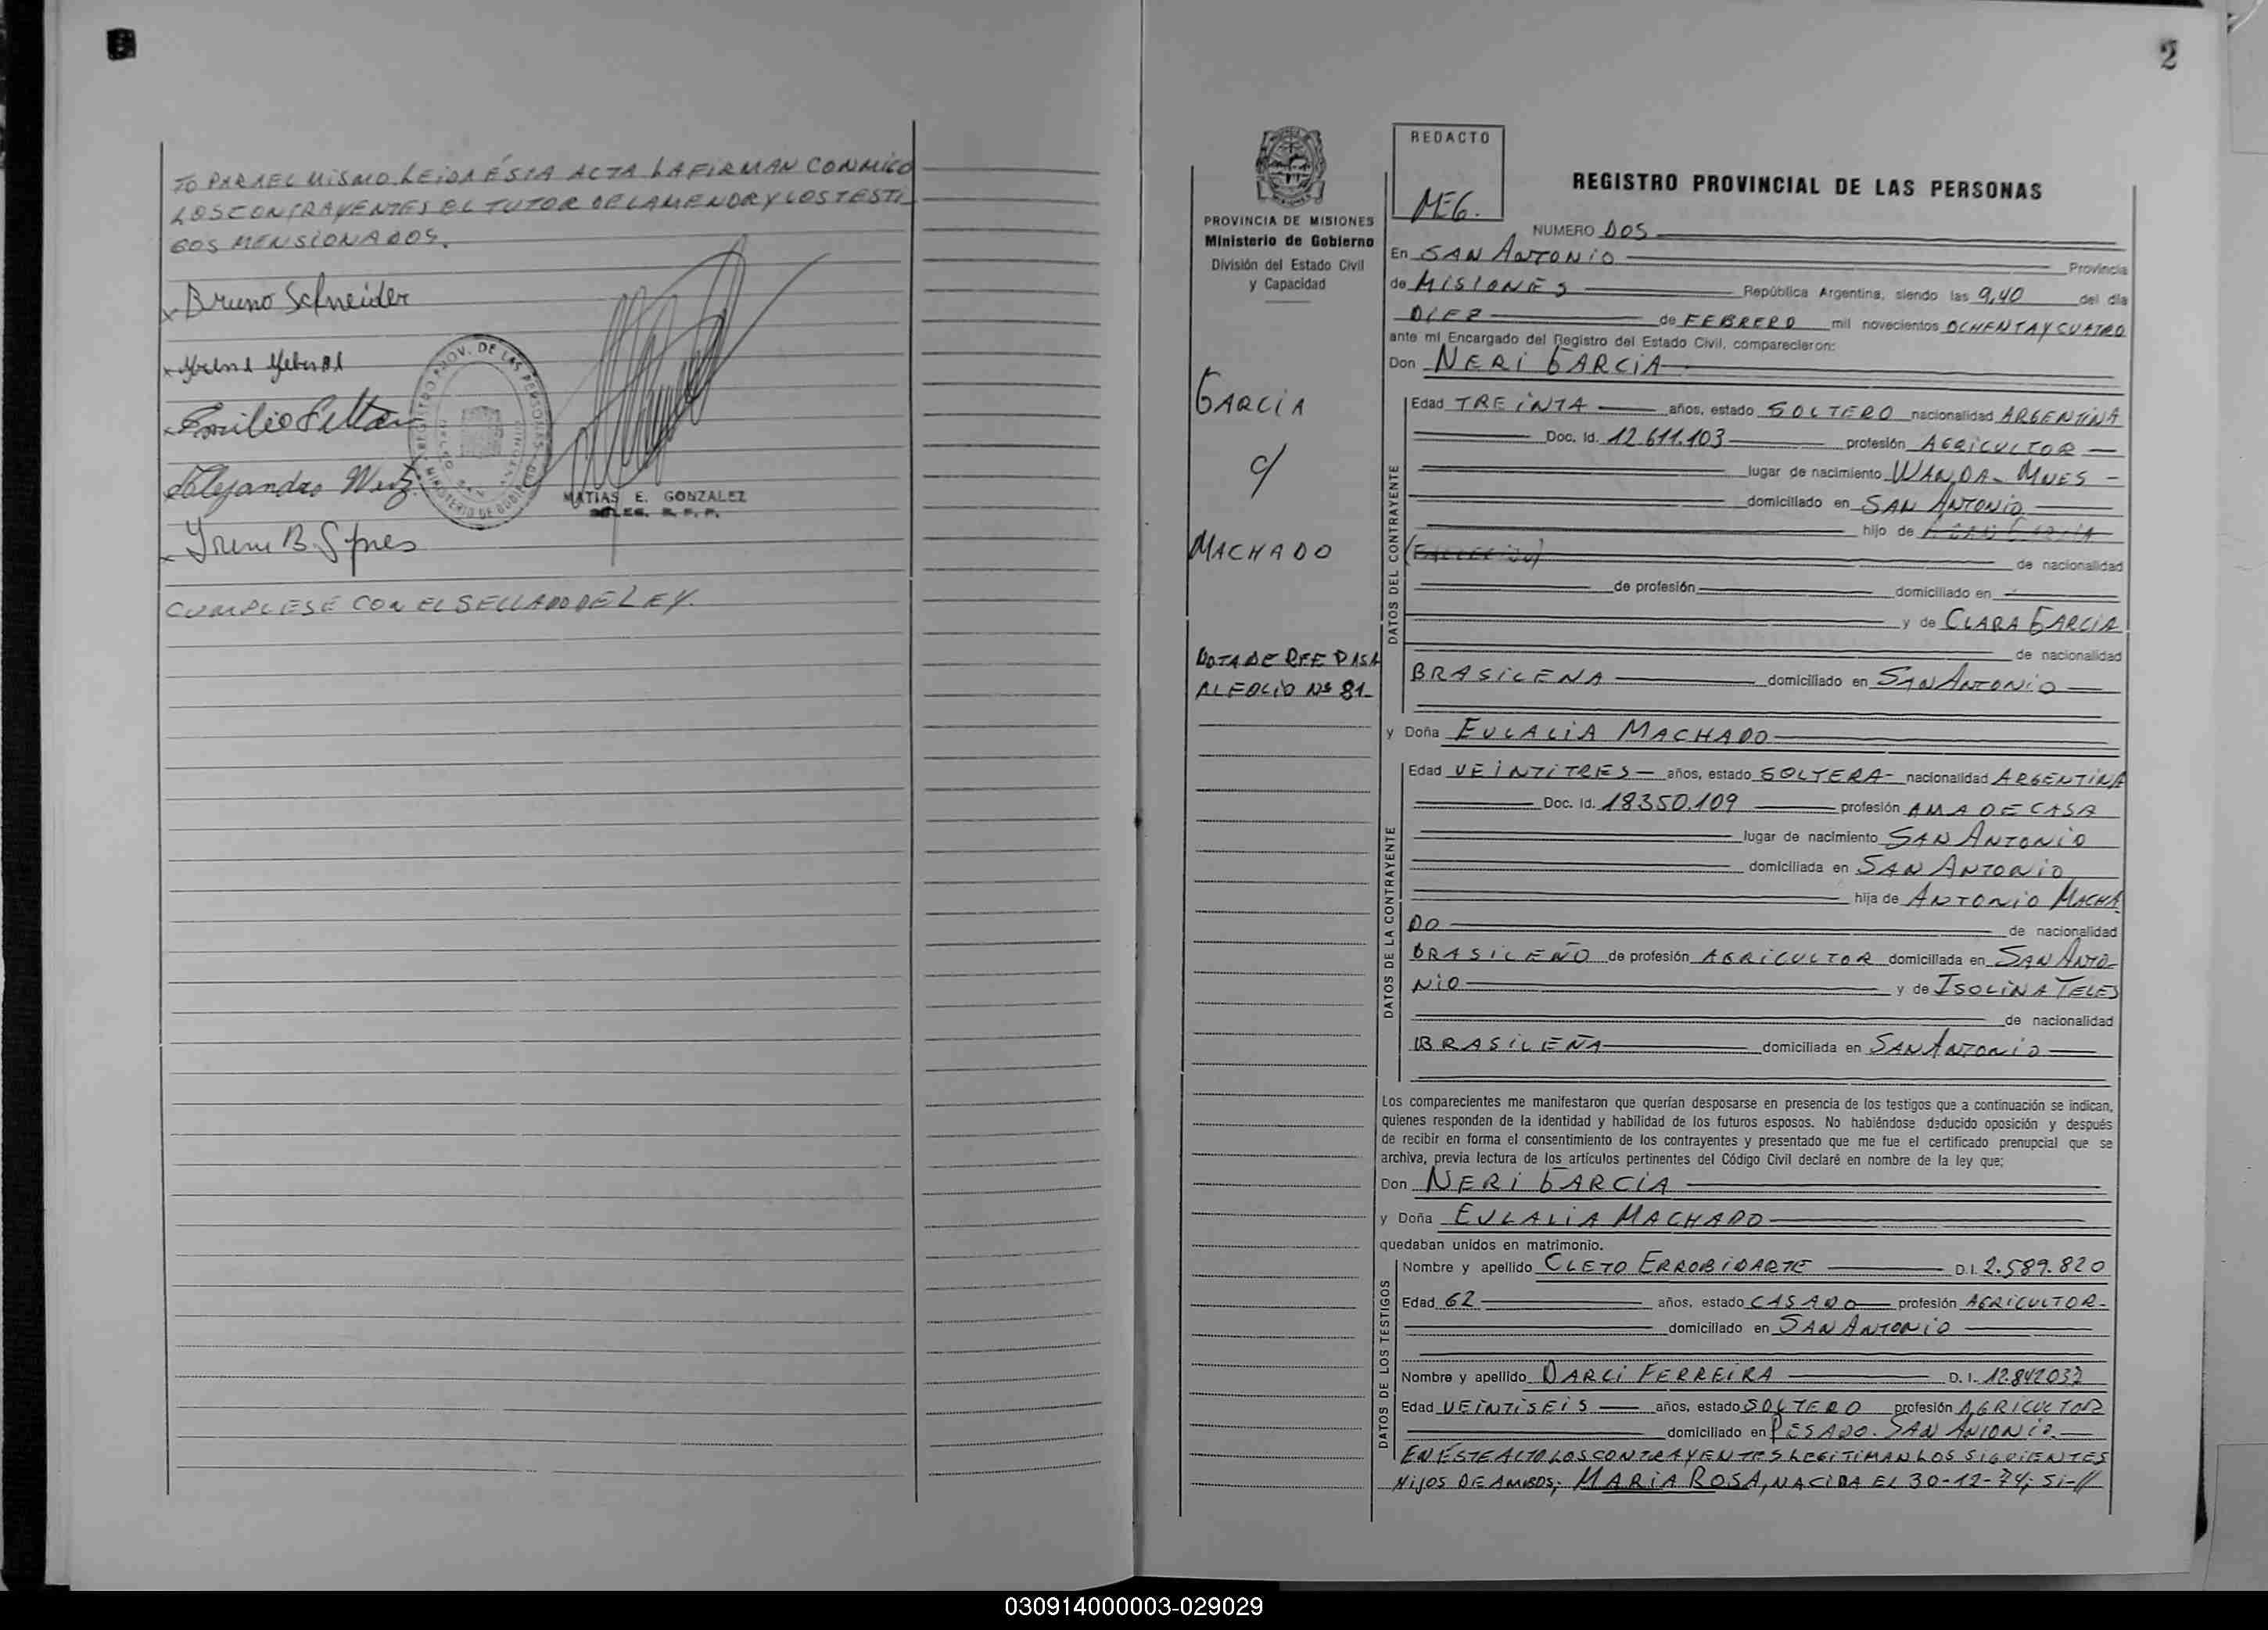 TO PARA EL MISMO. LEIDA ÉSTA ACTA LA FIRMAN CONMIGO
LOS CONTRAYENTES EL TUTOR DE LA MENOR Y LOS TESTI
GOS MENSIONADOS.
x Bruno Schneider
x
x Emilio
Alejandro
x Irene B.
REGISTRO PROV. DE LAS PERSONAS
MINISTERIO DE GOBIERNO
MATIAS E. GONZALEZ
CUMPLESE CON EL SELLADO DE LEY.
2
PROVINCIA DE MISIONES
Ministerio de Gobierno
División del Estado Civil
y Capacidad
GARCIA
c/
MACHADO
NOTA DE REF PASA
AL FOLIO Nº 81-
REDACTO
M.E.G.
REGISTRO PROVINCIAL DE LAS PERSONAS
NUMERO DOS
En SAN ANTONIO Provincia
de MISIONES República Argentina, siendo las 9,40 del día
DIEZ de FEBRERO mil novecientos OCHENTA Y CUATRO
ante mí Encargado del Registro del Estado Civil, comparecieron:
Don NERI GARCIA
DATOS DEL CONTRAYENTE
Edad TREINTA años, estado SOLTERO nacionalidad ARGENTINA
Doc. Id. 12.611.103 profesión AGRICULTOR
lugar de nacimiento WANDA - MNES -
domiciliado en SAN ANTONIO
hijo de
de nacionalidad
de profesión domiciliado en
y de CLARA GARCIA
de nacionalidad
BRASILENA domiciliado en SAN ANTONIO
y Doña EULALIA MACHADO
DATOS DE LA CONTRAYENTE
Edad VEINTITRES años, estado SOLTERA - nacionalidad ARGENTINA
Doc. Id. 18350.109 profesión AMA DE CASA
lugar de nacimiento SAN ANTONIO
domiciliada en SAN ANTONIO
hija de ANTONIO MACHA
DO de nacionalidad
BRASILEÑO de profesión AGRICULTOR domiciliada en SAN ANTO-
NIO y de ISOLINA TELES
de nacionalidad
BRASILEÑA domiciliada en SAN ANTONIO
Los comparecientes me manifestaron que querían desposarse en presencia de los testigos que a continuación se indican,
quienes responden de la identidad y habilidad de los futuros esposos. No habiéndose deducido oposición y después
de recibir en forma el consentimiento de los contrayentes y presentado que me fue el certificado prenupcial que se
archiva, previa lectura de los artículos pertinentes del Código Civil declaré en nombre de la ley que;
Don NERI GARCIA
y Doña EULALIA MACHADO
quedaban unidos en matrimonio.
DATOS DE LOS TESTIGOS
Nombre y apellido CLETO ERROBIDARTE D.I. 2.589.820
Edad 62 años, estado CASADO profesión AGRICULTOR-
domiciliado en SAN ANTONIO
Nombre y apellido DARCI FERREIRA D.I. 12.842037
Edad VEINTISEIS años, estado SOLTERO profesión AGRICULTOR
domiciliado en PESADO. SAN ANTONIO.
EN ÉSTE ACTO LOS CONTRAYENTES LEGITIMAN LOS SIGUIENTES
HIJOS DE AMBOS; MARIA ROSA, NACIDA EL 30-12-74; SI-//
030914000003-029029